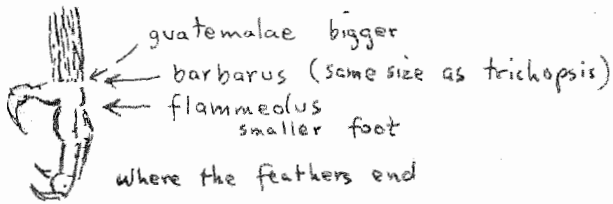 guatemalae bigger
barbarus (same size as trichopsis)
flammeolus
smaller foot
where the feathers end